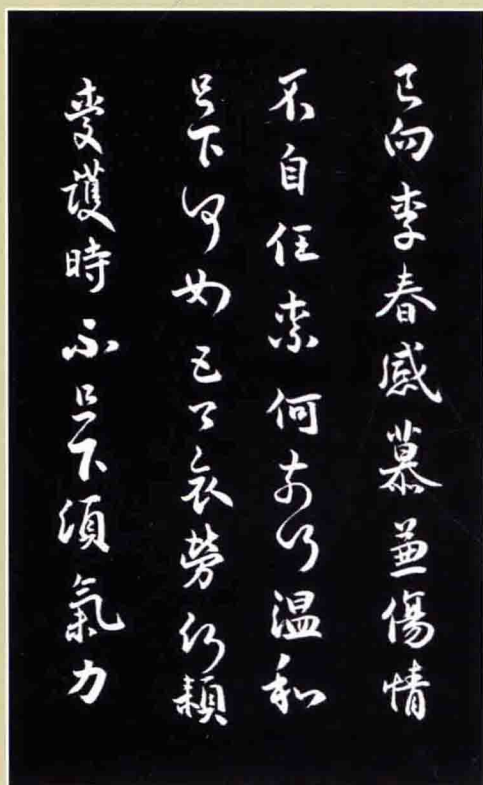 已向季春感慕兼傷情
不自任柰何温和
足下何如吾哀勞何賴
愛護時不足下須氣力